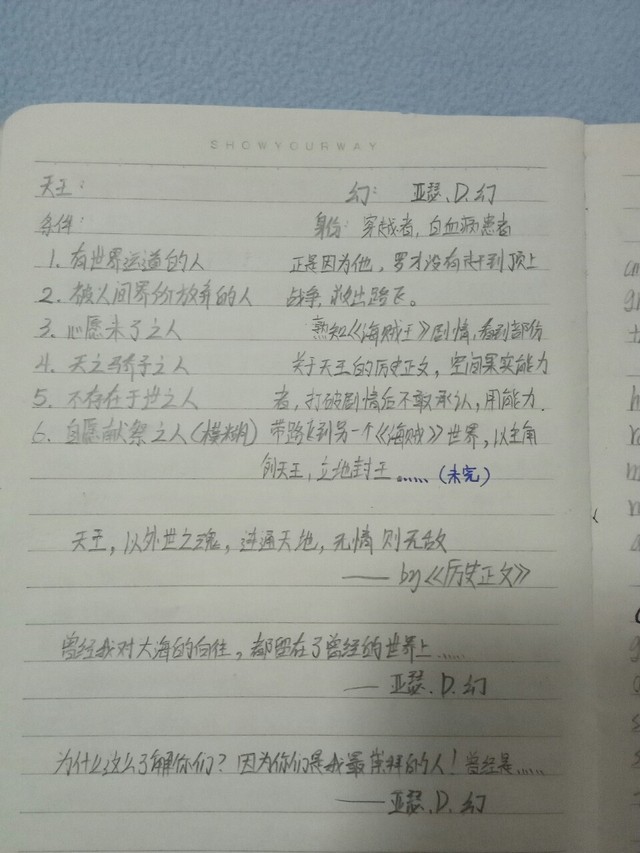 SHOWYOURWAY
天王: 幻: 亚瑟.D.幻
条件: 身份: 穿越者,白血病患者
1. 有世界运道的人 正是因为他,罗才没有赶到顶上
2. 被人间界所放弃的人 战争,救出路飞。
3. 心愿未了之人 熟知《海贼王》剧情,看到部份
4. 天之骄子之人 关于天王的历史正文,空间果实能力
5. 不存在于世之人 者,打破剧情后不敢承认,用能力.
6. 自愿献祭之人(模糊) 带路飞到另一个《海贼》世界,以主角
创天王,立地封王......(未完)
天王,以外世之魂,连通天地,无情则无敌
—— by《历史正文》
曾经我对大海的向往,都留在了曾经的世界上......
—— 亚瑟.D.幻
为什么这么了解你们?因为你们是我最崇拜的人!曾经是......
—— 亚瑟.D.幻